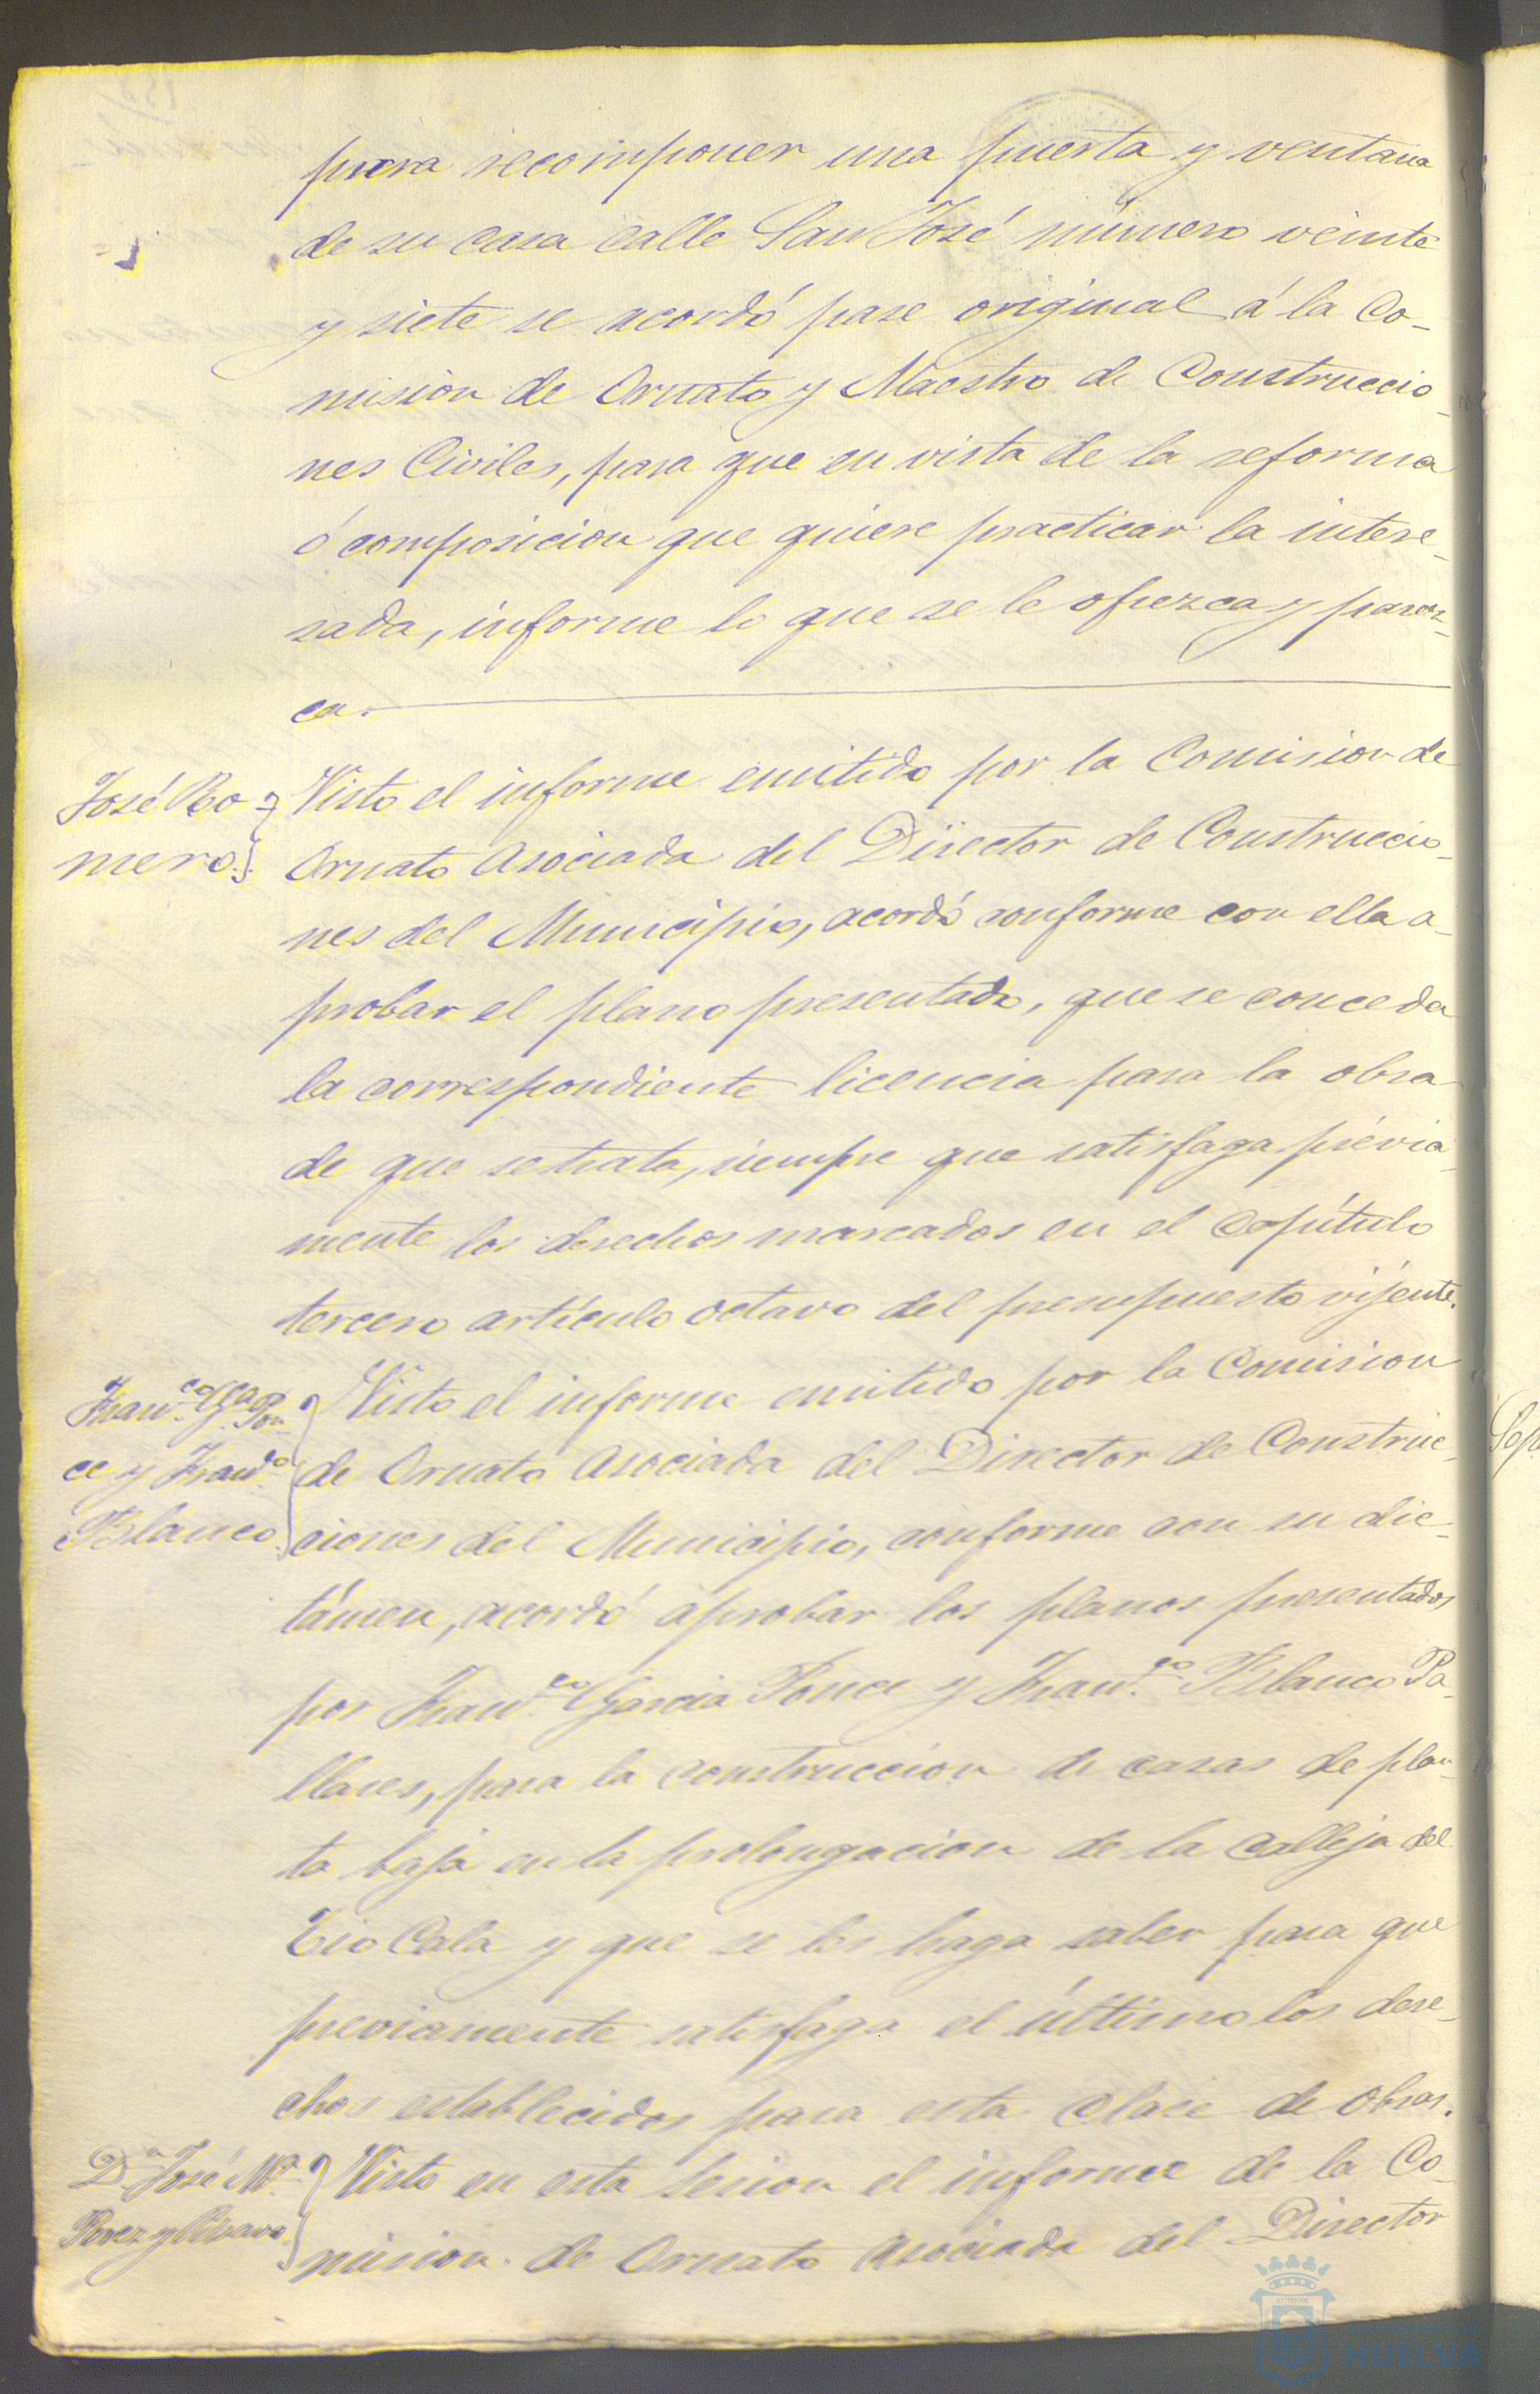 para recomponer una puerta y ventana
de su casa calle San José número veinte
y siete se acordó pase original á la Co-
mision de Ornato y Maestro de Construccio-
nes Civiles, para que en vista de la reforma
ó composicion que quiere practicar la intere-
sada, informe lo que se le ofrezca y parez-
ca.
José Ro-
mero.
Visto el informe emitido por la Comision de
Ornato Asociada del Director de Construccio-
nes del Municipio, acordó conforme con ella a-
probar el plano presentado, que se conceda
la correspondiente licencia para la obra
de que se trata, siempre que satisfaga prévia-
mente los derechos marcados en el Capítulo
tercero artículo octavo del presupuesto vijente.
Franco. Ga. Pon-
ce y Franco.
Blanco.
Visto el informe emitido por la Comision
de Ornato Asociada del Director de Construc-
ciones del Municipio, conforme con su dic-
támen, acordó aprobar los planos presentados
por Franco. Garcia Ponce y Franco. Blanco Pa-
llares, para la construccion de casas de plan-
ta baja en la prolongacion de la Calleja del
Tio Cala y que se les haga saber para que
previamente satisfaga el último los dere-
chos establecidos para esta clase de obras.
Dn. José Ma.
Perez y
Visto en esta sesion el informe de la Co-
mision de Ornato Asociada del Director
HUELVA